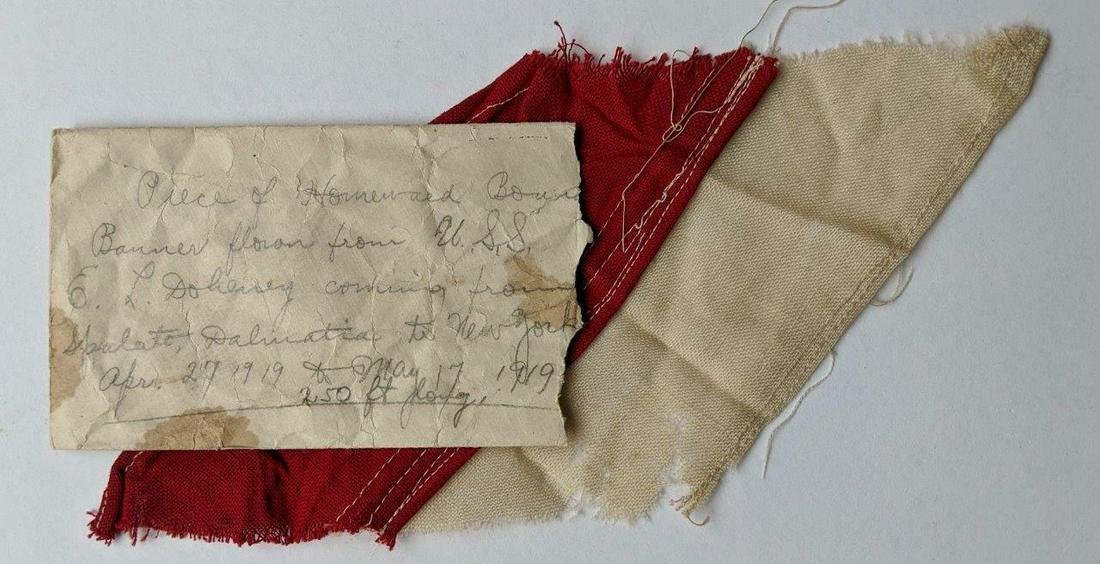 Piece of Homeward Boun
Banner flown from U.S.S.
E. L. Doheney coming from
Spalato, Dalmatia to New York
Apr. 27 1919 to May 17, 1919
250 ft long,